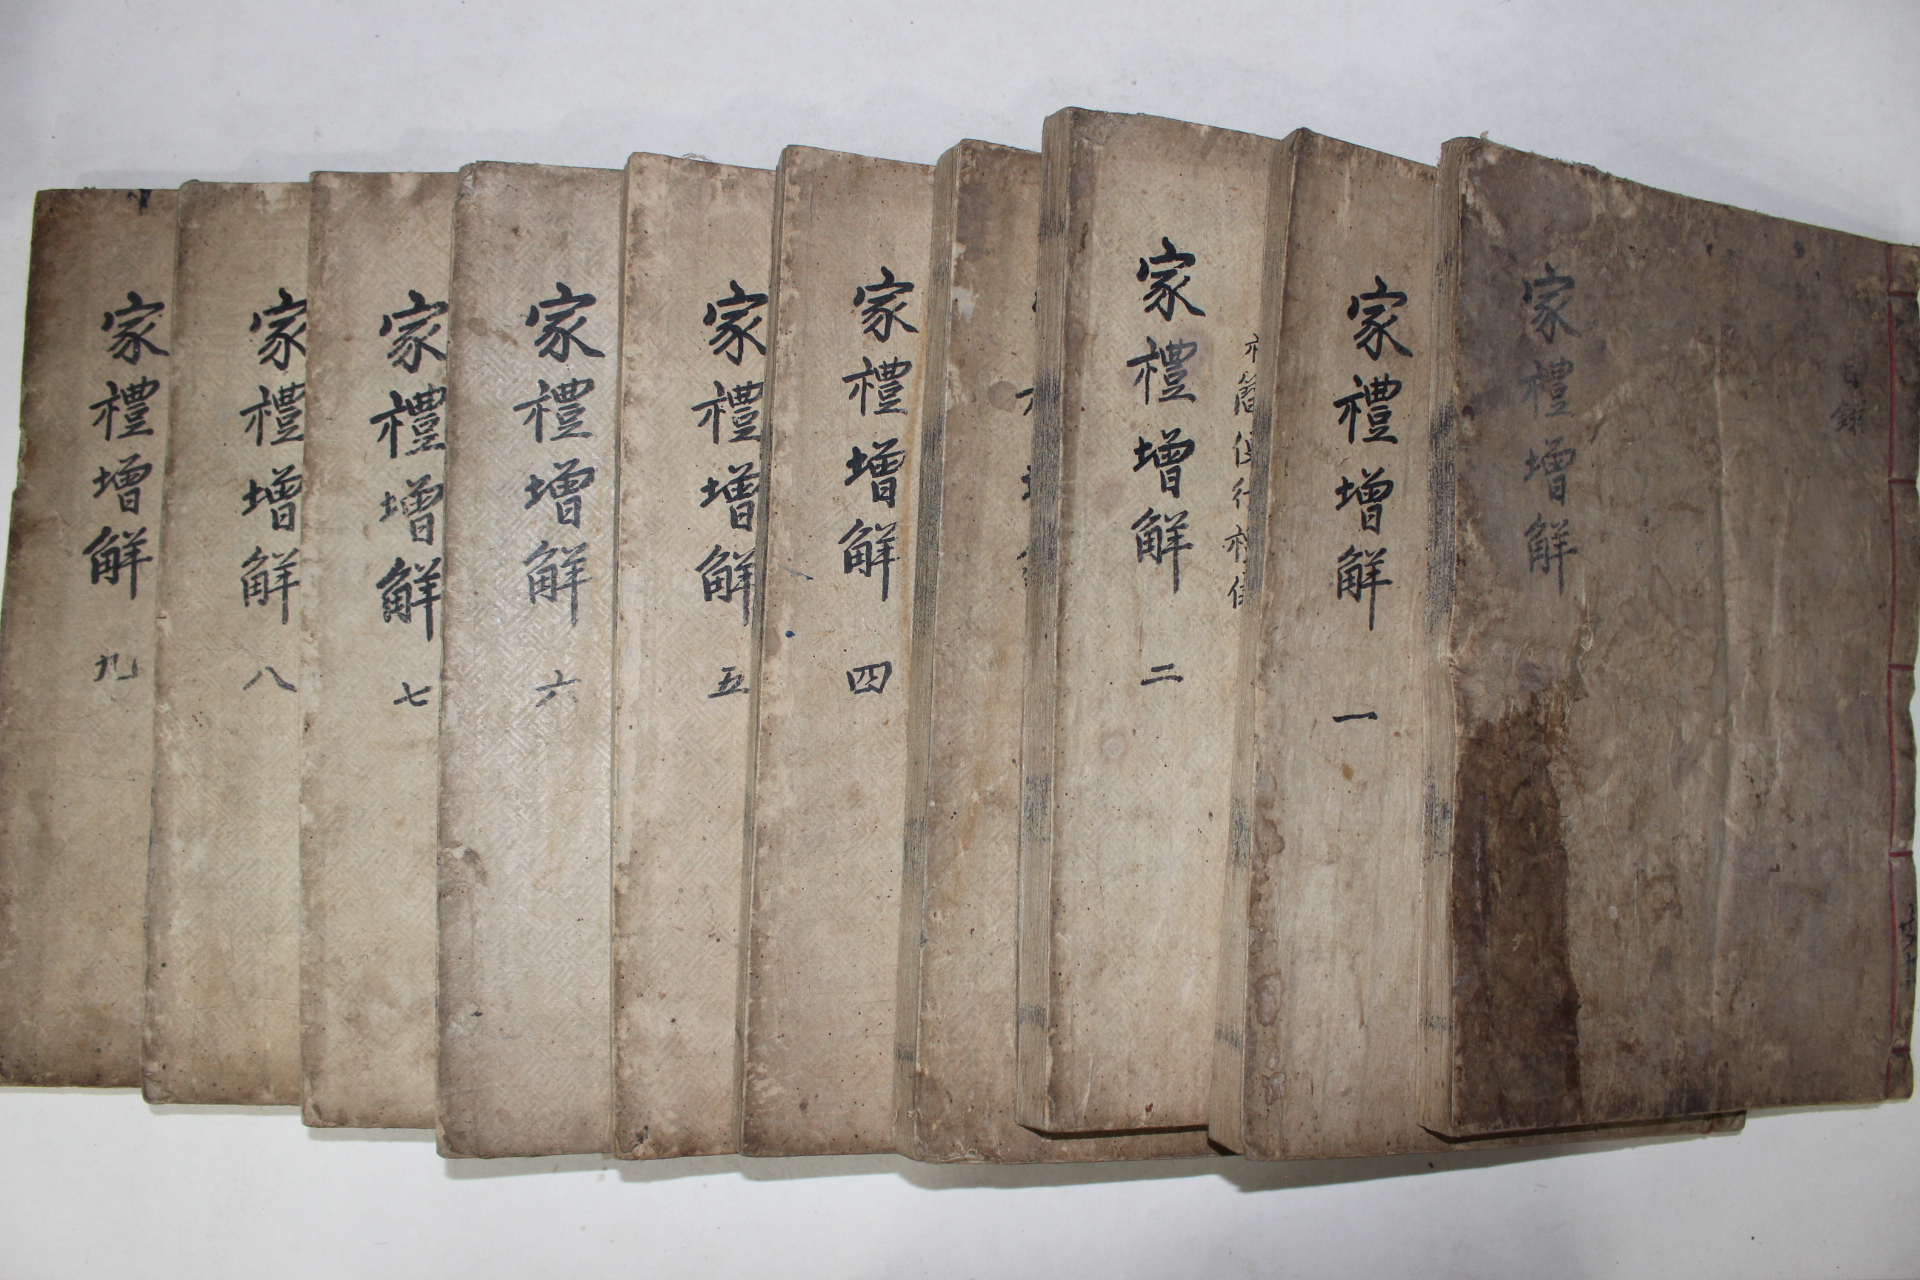 家禮增解
目錄
家禮增解 一
家禮增解 二
家禮增解 四
家禮增解 五
家禮增解 六
家禮增解 七
家禮增解 八
家禮增解 九